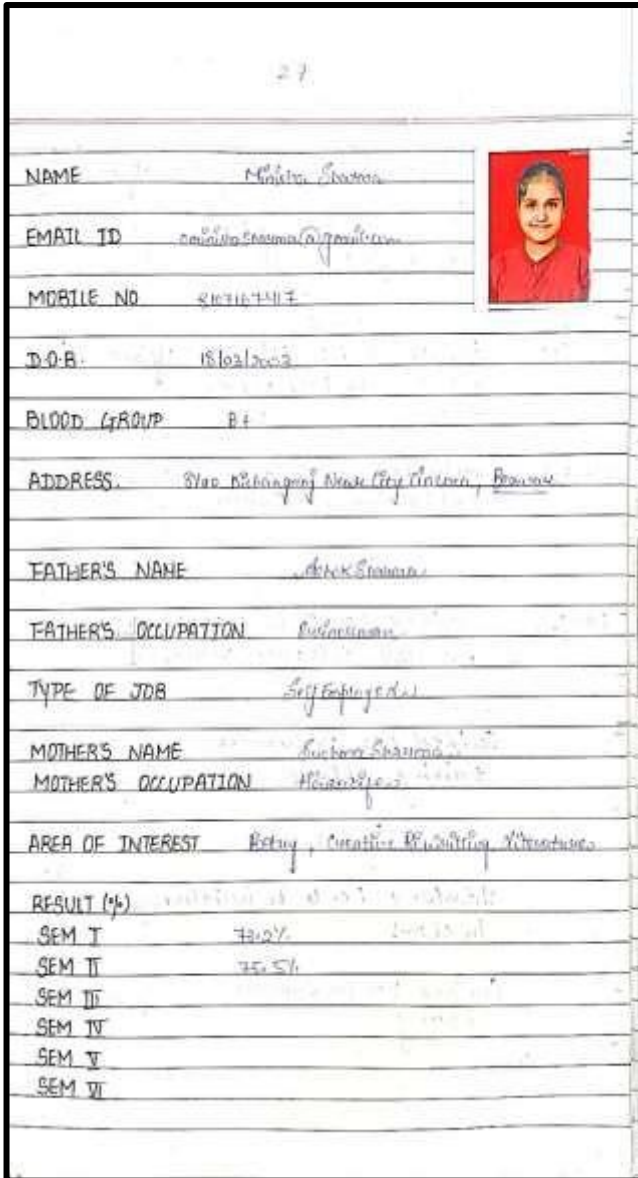 27
NAME Minisha Sharma
EMAIL ID
MOBILE NO 8107167417
D.O.B. 18/02/2003
BLOOD GROUP B+
ADDRESS. Near City Cinema, Beawar
FATHER'S NAME Ashok Sharma
FATHER'S OCCUPATION Businessman
TYPE OF JOB Self Employed
MOTHER'S NAME Sharma
MOTHER'S OCCUPATION Housewife
AREA OF INTEREST , Creative Literature
RESULT (%)
SEM I 73.2%
SEM II 75.5%
SEM III
SEM IV
SEM V
SEM VI